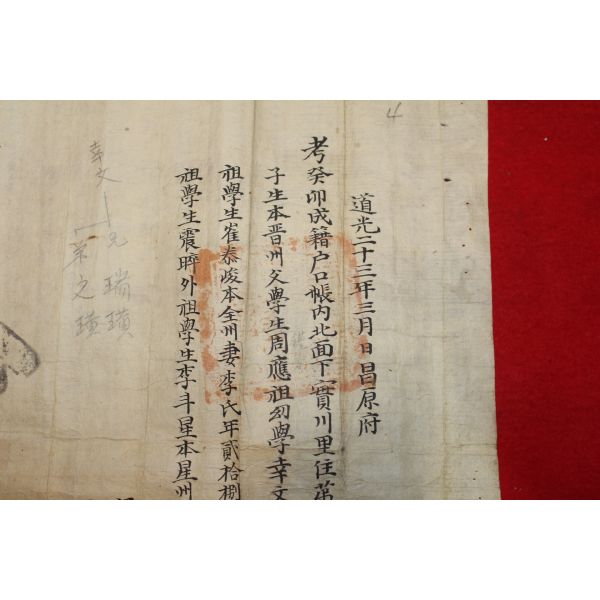 4
道光二十三年三月 日昌原府
考癸卯成籍户口帳內北面下實川里住第
子生本晋州父學生周應祖幼學幸文
祖學生崔恭峻本全州妻李氏年貳拾捌
祖學生震 外祖學生李斗星本星州
兄 瑞璜
幸文
弟 之璜